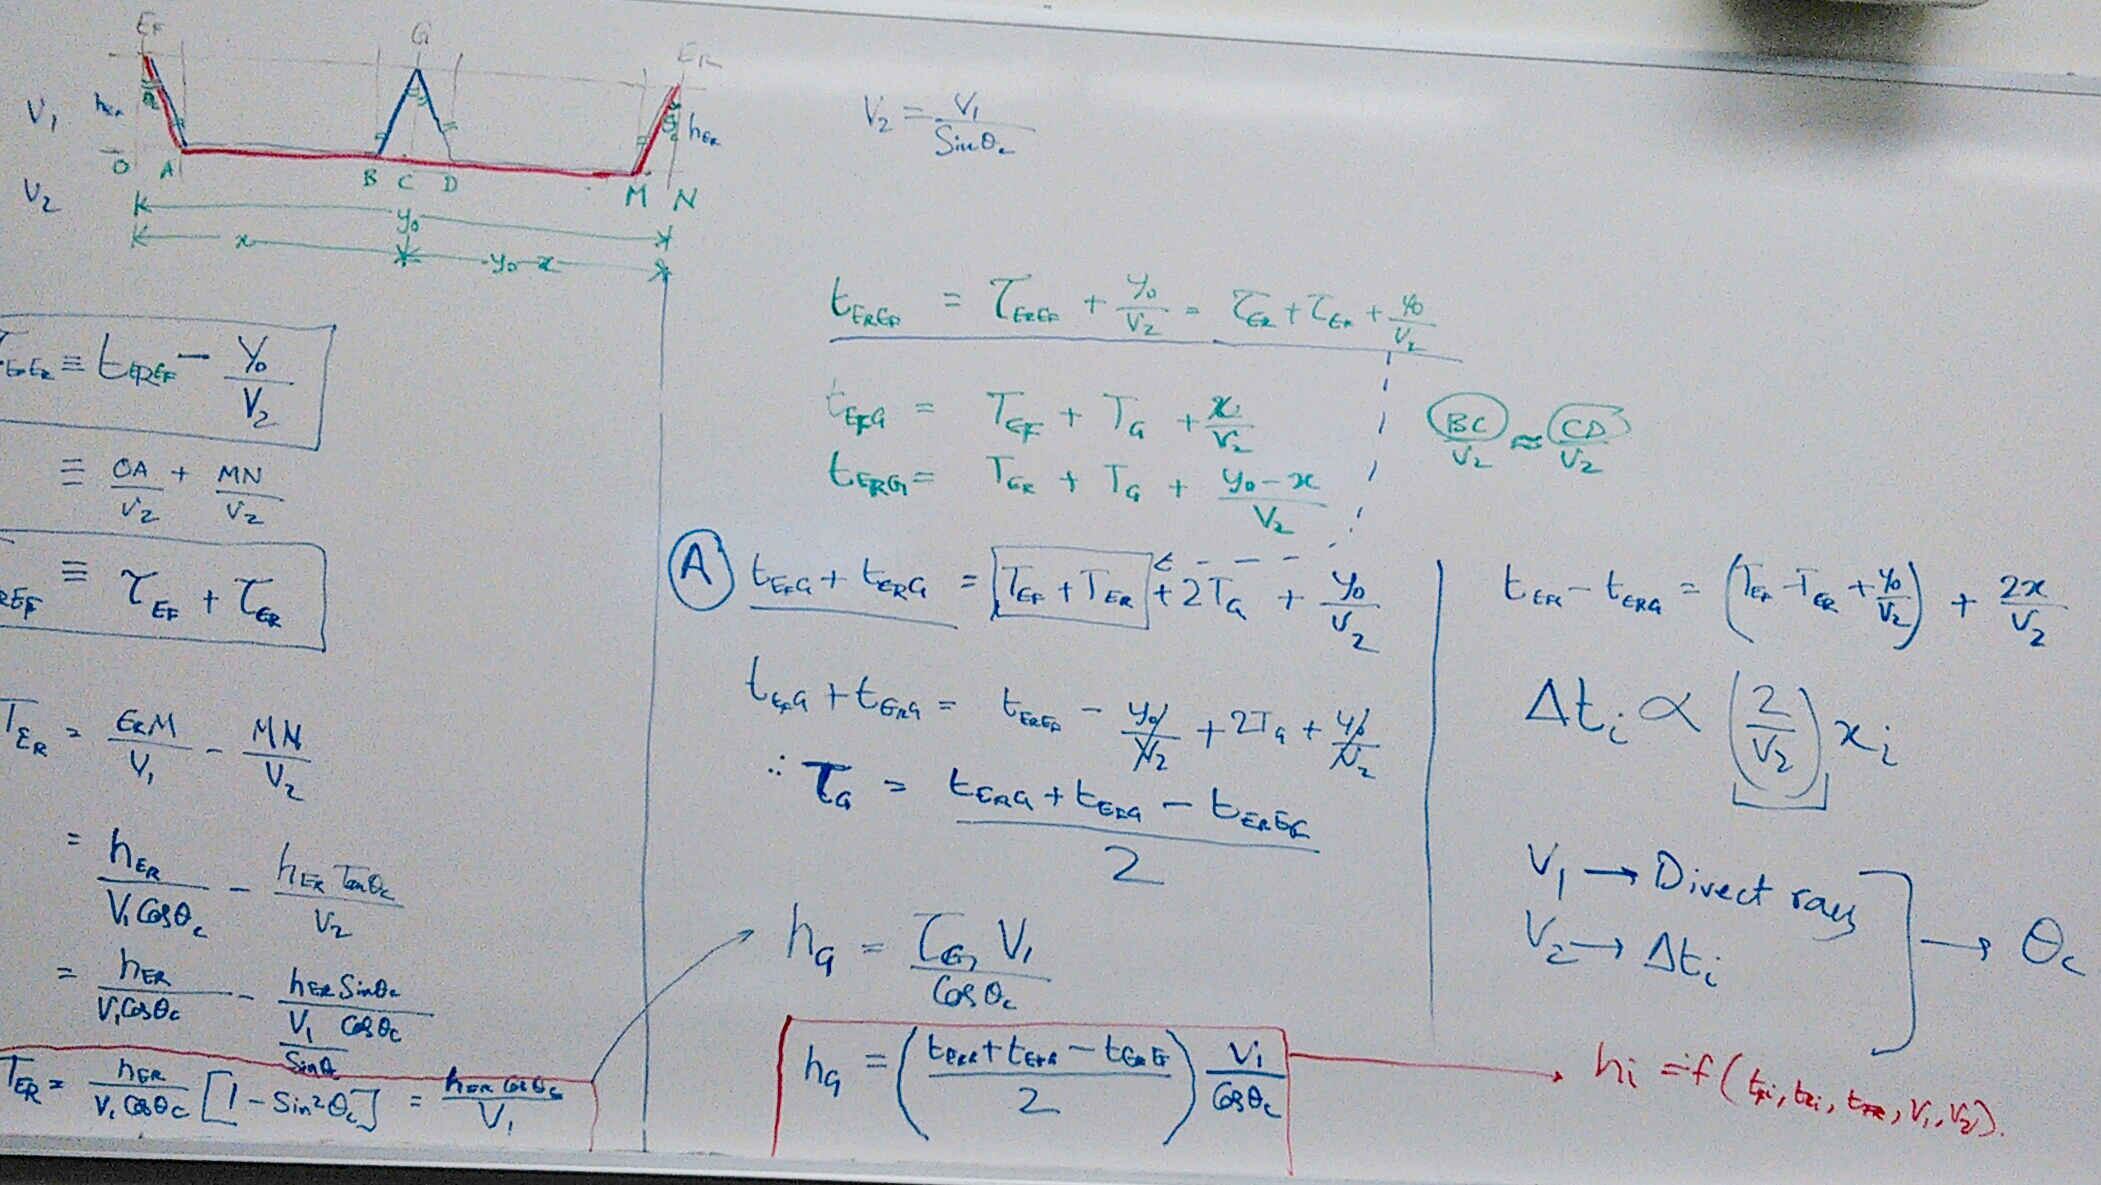 E_F G E_R
V₁ h_EF θc h_ER
O A B C D M N
V₂
y₀
x y₀-x
V₂ = V₁ / Sinθc
τ_EFER ≡ t_EREF - y₀/V₂
≡ OA/V₂ + MN/V₂
REF ≡ τ_EF + τ_ER
T_ER = ERM/V₁ - MN/V₂
= h_ER/(V₁ Cosθc) - h_ER Tanθc/V₂
= h_ER/(V₁ Cosθc) - h_ER Sinθc/((V₁/Sinθ) Cosθc)
T_ER = h_ER/(V₁ Cosθc) [1 - Sin²θc] = h_ER Cosθc/V₁
t_EREF = τ_EREF + y₀/V₂ = τ_ER + τ_EF + y₀/V₂
t_EFG = T_EF + T_G + x/V₂
t_ERG = T_ER + T_G + (y₀-x)/V₂
BC/V₂ ≈ CD/V₂
(A) t_EFG + t_ERG = T_EF + T_ER + 2T_G + y₀/V₂
t_EFG + t_ERG = t_EREF - y₀/V₂ + 2T_G + y₀/V₂
∴ τ_G = (t_ERG + t_EFG - t_EREF)/2
h_G = τ_G V₁/Cosθc
h_G = ((t_ERG + t_EFG - t_EREF)/2) V₁/Cosθc
t_EFG - t_ERG = (T_EF - T_ER + y₀/V₂) + 2x/V₂
Δtᵢ ∝ (2/V₂) xᵢ
V₁ → Direct rays
V₂ → Δtᵢ
→ θc
hᵢ = f(t_Fi, t_Ri, t_FR, V₁, V₂).